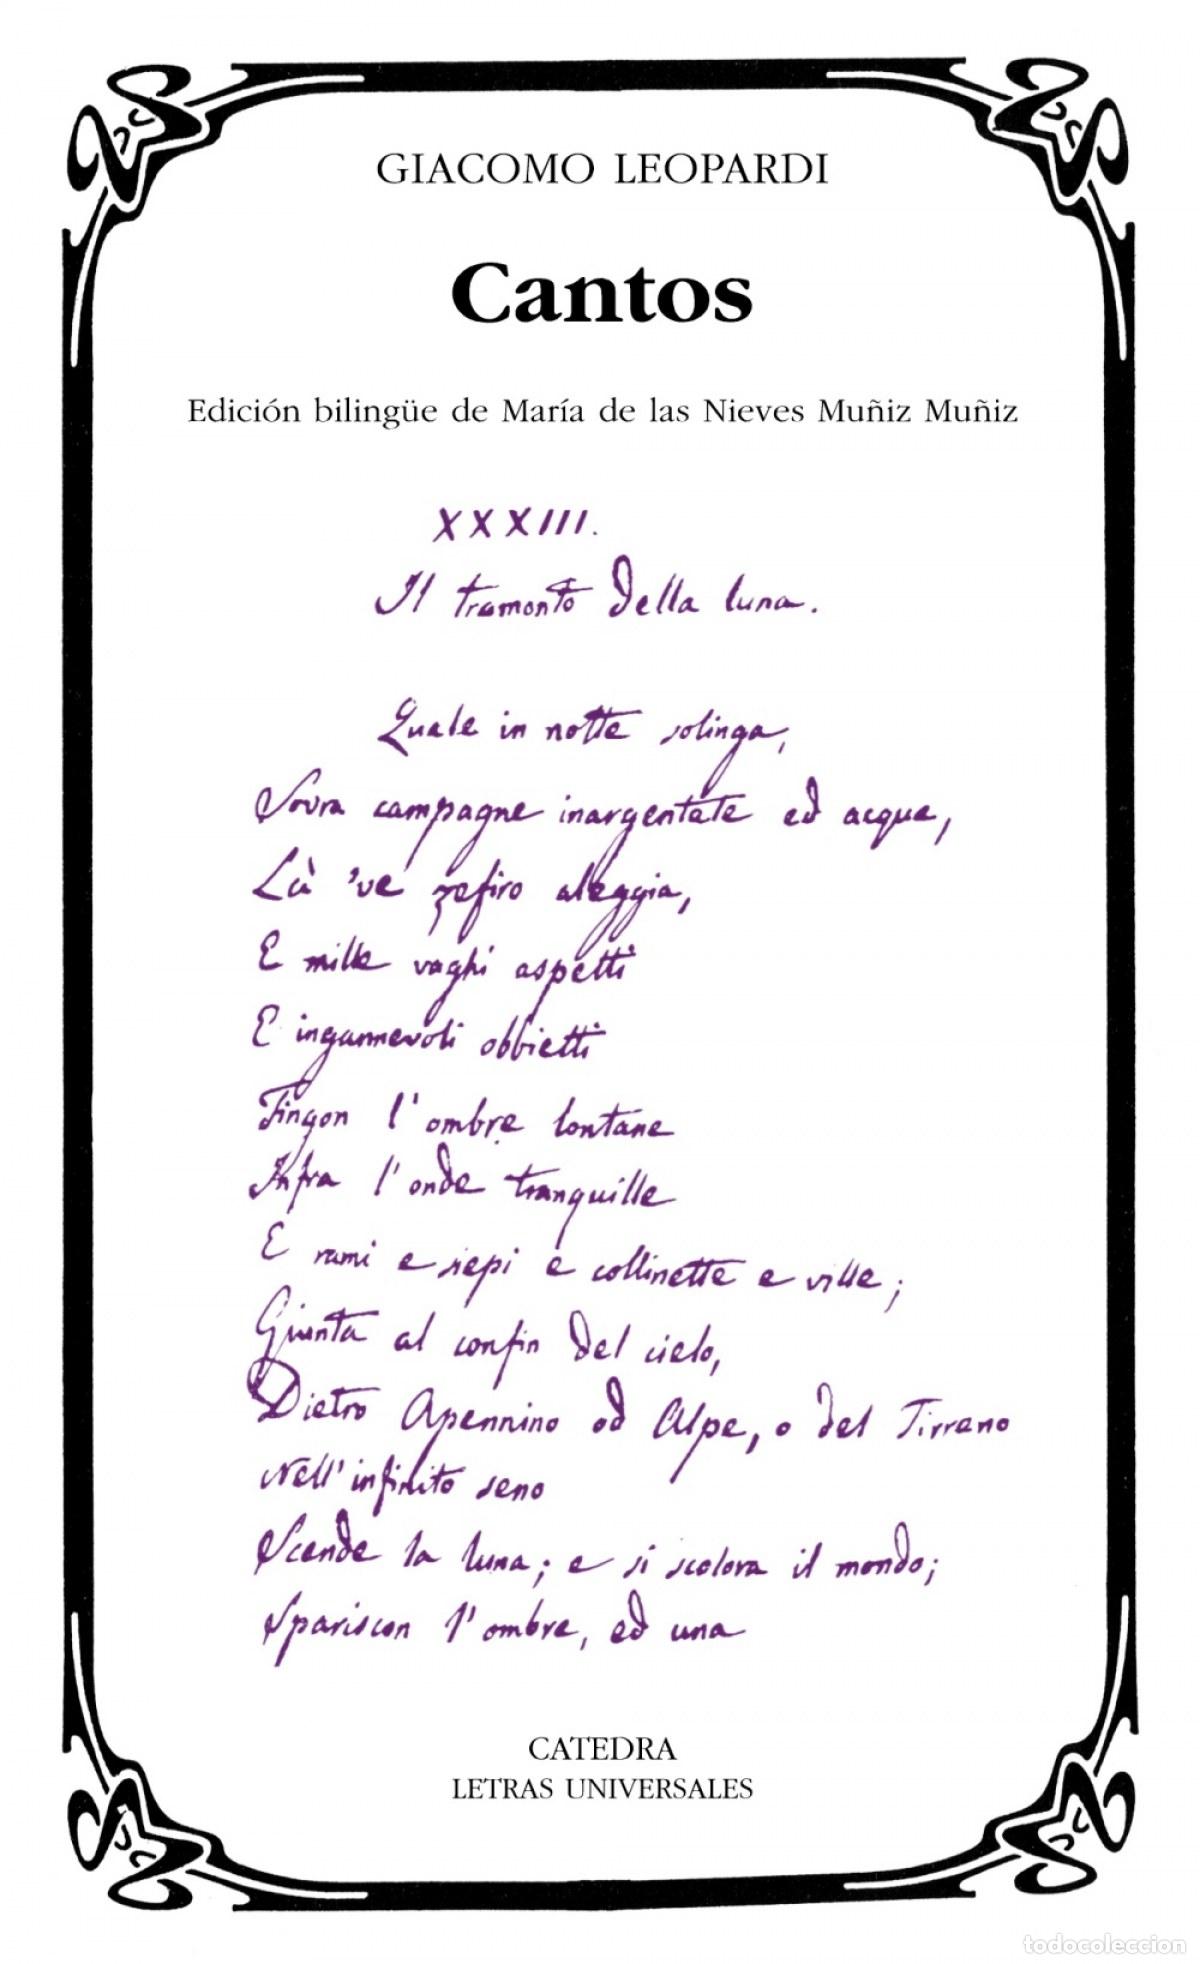 GIACOMO LEOPARDI
Cantos
Edición bilingüe de María de las Nieves Muñiz Muñiz
XXXIII.
Il tramonto della luna.
Quale in notte solinga,
Sovra campagne inargentate ed acque,
Là 've zefiro aleggia,
E mille vaghi aspetti
E ingannevoli obbietti
Fingon l'ombre lontane
Infra l'onde tranquille
E rami e siepi e collinette e ville;
Giunta al confin del cielo,
Dietro Apennino od Alpe, o del Tirreno
Nell'infinito seno
Scende la luna; e si scolora il mondo;
Spariscon l'ombre, ed una
CATEDRA
LETRAS UNIVERSALES
todocoleccion